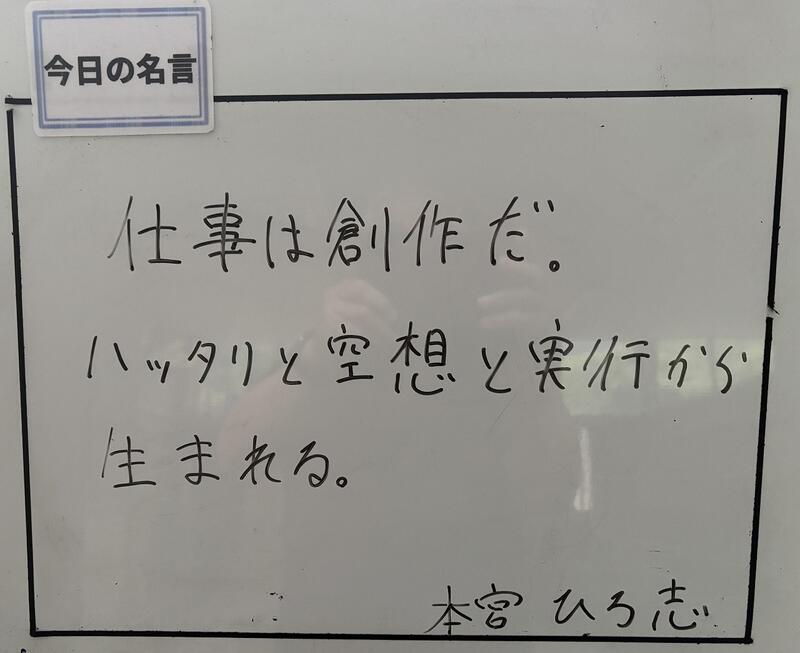 今日の名言
仕事は創作だ。
ハッタリと空想と実行から
生まれる。
本宮 ひろ志